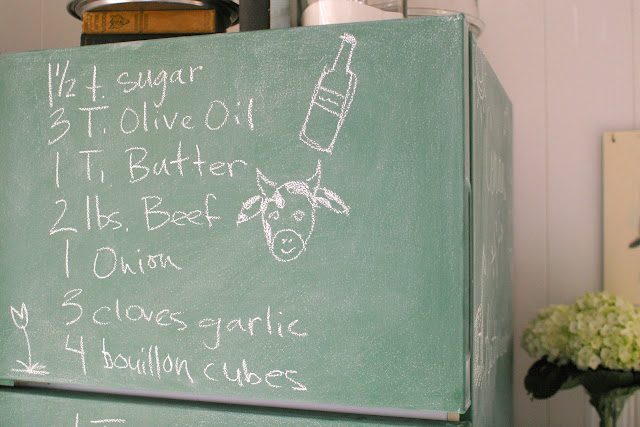 1½ t. sugar
3 T. Olive Oil
1 T. Butter
2 lbs. Beef
1 Onion
3 cloves garlic
4 bouillon cubes